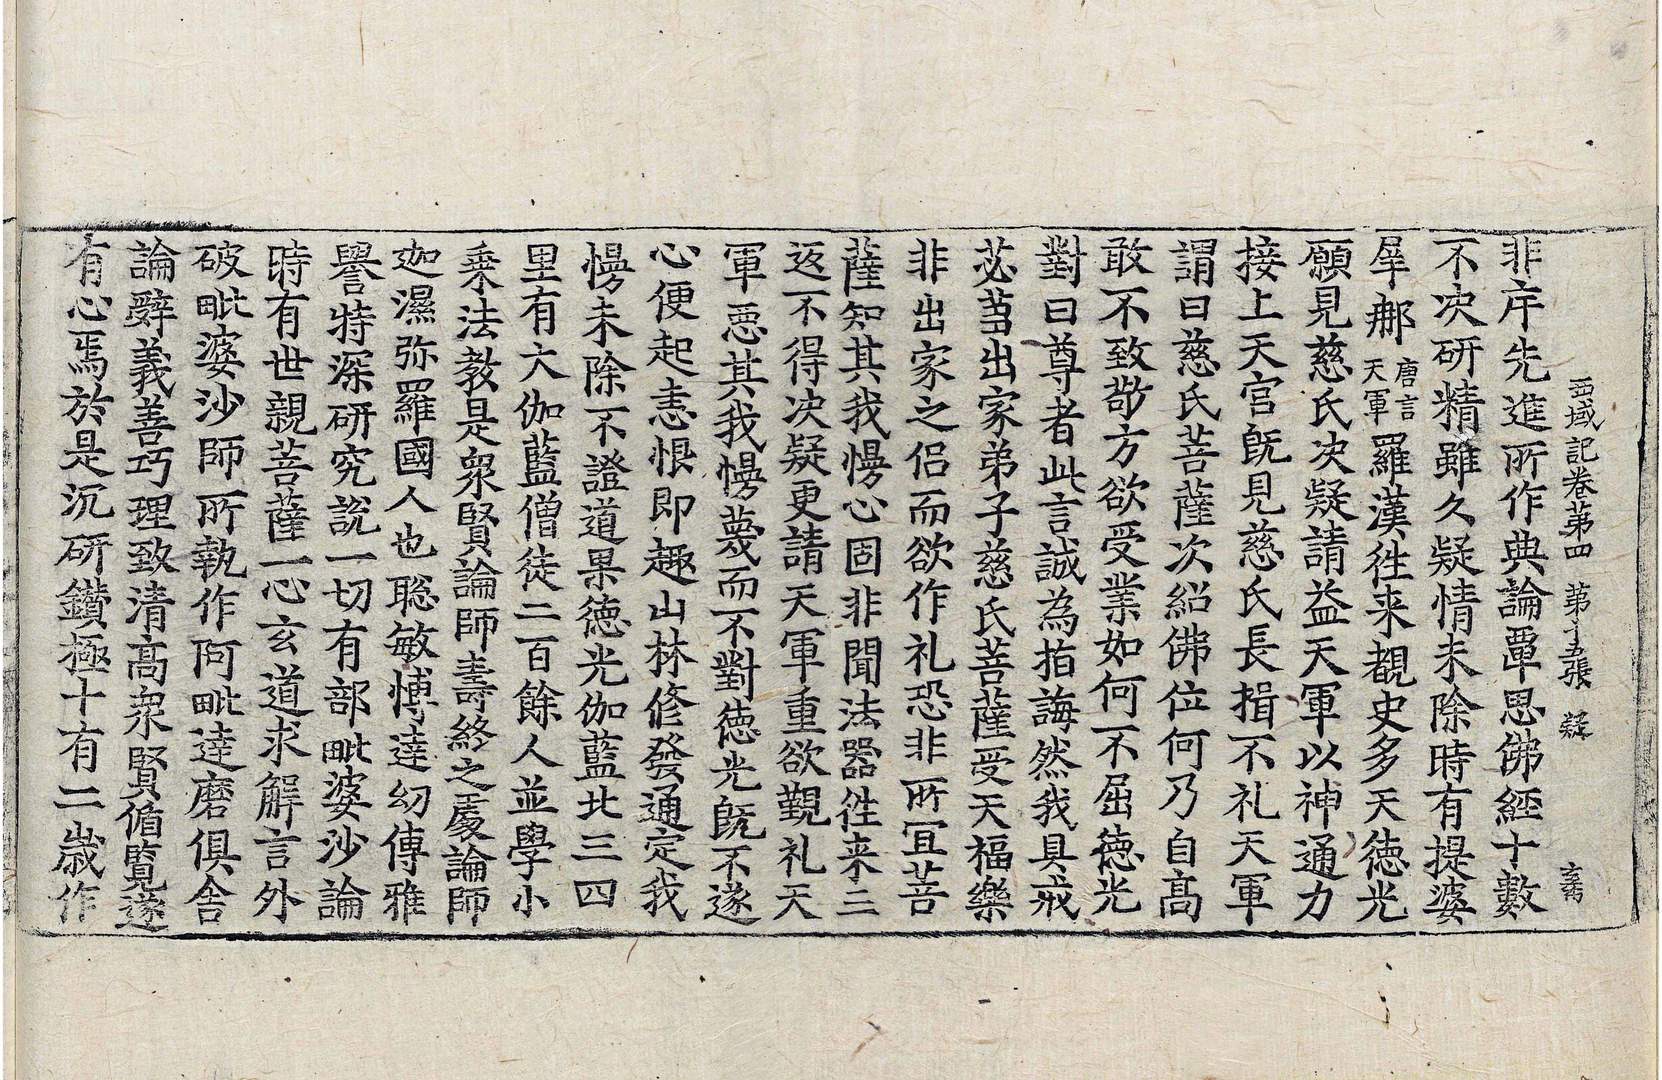 西域記卷第四 第十五張 疑 玄蕎
非斥先進所作典論覃思佛經十數
不次研精雖久疑情未除時有提婆
犀那唐言天軍羅漢往来覩史多天徳光
願見慈氏決疑請益天軍以神通力
接上天宮旣見慈氏長揖不礼天軍
謂曰慈氏菩薩次紹佛位何乃自高
敢不致敬方欲受業如何不屈徳光
對曰尊者此言誠為指誨然我具戒
苾芻出家弟子慈氏菩薩受天福樂
非出家之侣而欲作礼恐非所宜菩
薩知其我慢心固非聞法器徃来三
返不得決疑更請天軍重欲覲礼天
軍惡其我慢蔑而不對徳光旣不遂
心便起恚恨即趣山林修發通定我
慢未除不證道果徳光伽藍北三四
里有大伽藍僧徒二百餘人並學小
乗法教是衆賢論師壽終之處論師
迦濕弥羅國人也聡敏博達㓜傳雅
譽特深研究説一切有部毗婆沙論
時有世親菩薩一心玄道求解言外
破毗婆沙師所執作阿毗達磨俱舍
論辭義善巧理致清高衆賢循覧遂
有心焉於是沉研鑚極十有二歲作